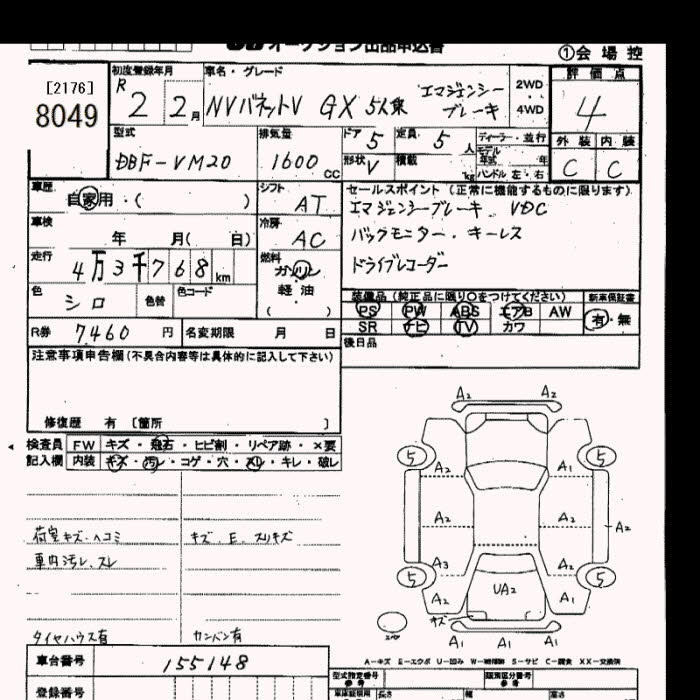 オークション出品申込書
①会場控
[2176]
8049
初度登録年月
R 2 2月
車名・グレード
NVバネットV GX 5人乗 エマージェンシーブレーキ
2WD
4WD
評価点
4
外装 内装
C C
型式
DBF-VM20
排気量
1600 CC
ドア 5
定員 5人
形状 V
積載 kg
ディーラー・並行
モデル年式 年
ハンドル 左・右
車歴
自家用・( )
シフト
AT
車検
年 月( 日)
冷房
AC
走行
4万3千768km
燃料
ガソリン
軽油
( )
色
シロ
色替
色コード
R券 7460円
名変期限 月 日
セールスポイント (正常に機能するものに限ります)
エマジェンシーブレーキ VDC
バックモニター・キーレス
ドライブレコーダー
装備品(純正品に限り○をつけてください)
新車保証書
PS PW ABS エアB AW
有・無
SR ナビ TV カワ
後日品
注意事項申告欄(不具合内容等は具体的に記入して下さい)
修復歴 有 〔箇所 〕
検査員記入欄
FW キズ・飛石・ヒビ割・リペア跡・×要
内装 キズ・汚レ・コゲ・穴・スレ・キレ・破レ
荷室キズ・ヘコミ
車内汚レ、スレ
キズ、E、スリキズ
タイヤハウス有
カンバン有
A2 A2
5 5
A2 A1
A2 A2 A2
A3 A1
5 5
A2 UA2 A1
キズ
A1 A1 A1
A-キズ E-エクボ U-凹み W-補修跡 S-サビ C-腐食 XX-交換済
車台番号
155148
登録番号
型式指定番号
類別区分番号
長さ 幅 高さ